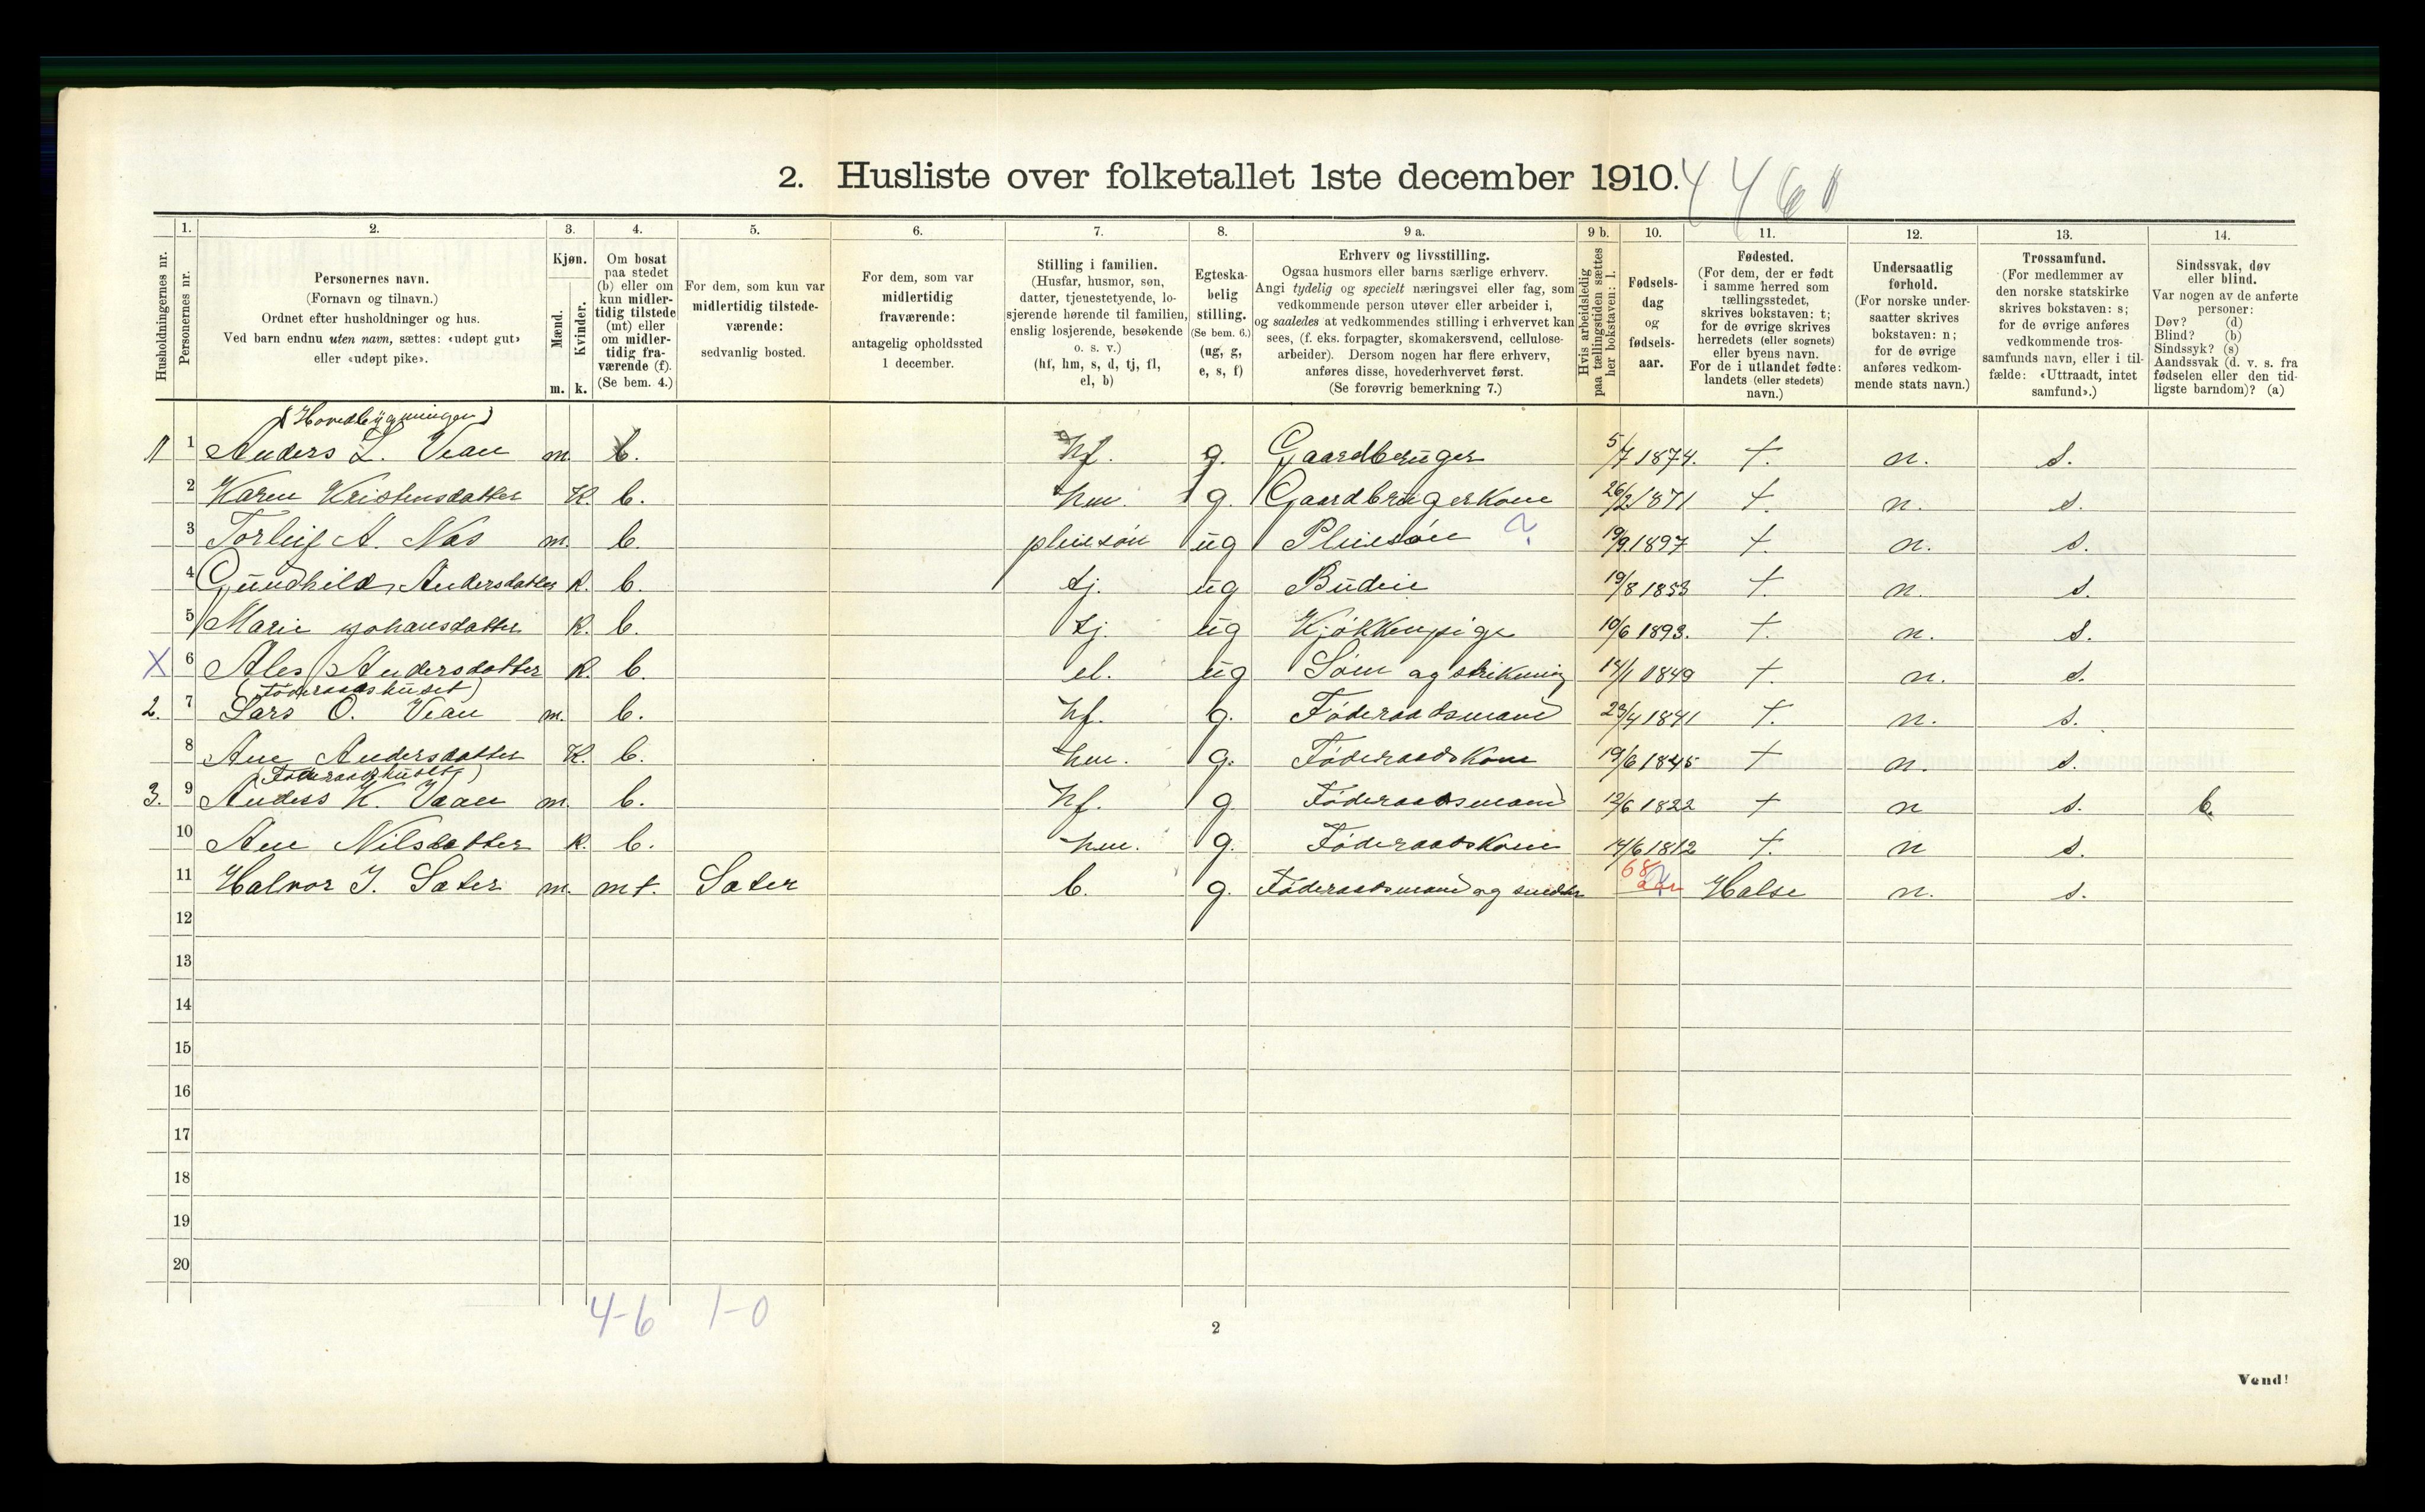 2. Husliste over folketallet 1ste december 1910. 4 4 6 0
1. 2. 3. 4. 5. 6. 7. 8. 9 a. 9 b. 10. 11. 12. 13. 14.
Husholdningernes nr.
Personernes nr.
Personernes navn.
(Fornavn og tilnavn.)
Ordnet efter husholdninger og hus.
Ved barn endnu uten navn, sættes: «udøpt gut»
eller «udøpt pike».
Kjøn.
Mænd.
Kvinder.
m. k.
Om bosat
paa stedet
(b) eller om
kun midler-
tidig tilstede
(mt) eller
om midler-
tidig fra-
værende (f).
(Se bem. 4.)
For dem, som kun var
midlertidig tilstede-
værende:
sedvanlig bosted.
For dem, som var
midlertidig
fraværende:
antagelig opholdssted
1 december.
Stilling i familien.
(Husfar, husmor, søn,
datter, tjenestetyende, lo-
sjerende hørende til familien,
enslig losjerende, besøkende
o. s. v.)
(hf, hm, s, d, tj, fl,
el, b)
Egteska-
belig
stilling.
(Se bem. 6.)
(ug, g,
e, s, f)
Erhverv og livsstilling.
Ogsaa husmors eller barns særlige erhverv.
Angi tydelig og specielt næringsvei eller fag, som
vedkommende person utøver eller arbeider i,
og saaledes at vedkommendes stilling i erhvervet kan
sees, (f. eks. forpagter, skomakersvend, cellulose-
arbeider). Dersom nogen har flere erhverv,
anføres disse, hovederhvervet først.
(Se forøvrig bemerkning 7.)
Hvis arbeidsledig
paa tællingstiden sættes
her bokstaven: l.
Fødsels-
dag
og
fødsels-
aar.
Fødested.
(For dem, der er født
i samme herred som
tællingsstedet,
skrives bokstaven: t;
for de øvrige skrives
herredets (eller sognets)
eller byens navn.
For de i utlandet fødte:
landets (eller stedets)
navn.)
Undersaatlig
forhold.
(For norske under-
saatter skrives
bokstaven: n;
for de øvrige
anføres vedkom-
mende stats navn.)
Trossamfund.
(For medlemmer av
den norske statskirke
skrives bokstaven: s;
for de øvrige anføres
vedkommende tros-
samfunds navn, eller i til-
fælde: «Uttraadt, intet
samfund».)
Sindssvak, døv
eller blind.
Var nogen av de anførte
personer:
Døv? (d)
Blind? (b)
Sindssyk? (s)
Aandssvak (d. v. s. fra
fødselen eller den tid-
ligste barndom)? (a)
(Hovedbygningen)
1 1 Anders L. Vean m. b. hf. g. Gaardbruger 5/7 1874. t. n. s.
2 Karen Kristensdatter K. b. hm. g. Gaardbrugerkone 26/2 1871 t. n. s.
3 Torleif A. Nes m. b. pleiesøn ug Pleiesøn ? 19/9 1897 t. n. s.
4 Gundhild Andersdatter K. b. tj. ug Budeie 19/8 1853 t. n. s.
5 Marie Johansdatter K. b. tj. ug Kjøkkenpige 10/6 1893. t. n. s.
X 6 Ales Andersdatter K. b. el. ug Søm og strikning 14/1 1849 t. n. s.
(Føderaadshuset)
2. 7 Lars O. Vean m. b. hf. g. Føderaadsmand 23/4 1841 t. n. s.
8 Ane Andersdatter K. b. hm. g. Føderaadskone 19/6 1845 t n. s.
(Føderaadshuset)
3. 9 Anders K. Vaan m. b. hf. g. Føderaadsmand 12/6 1822 t n s. b.
10 Ane Nilsdatter K. b. hm. g. Føderaadskone 14/6 1812 t. n s.
11 Halvor J. Sæter m. mt. Sæter b. g. Føderaadsmand og snedker 68 aar Halse n. s.
12
13
14
15
16
17
18
19
20
4-6 1-0
2
Vend!